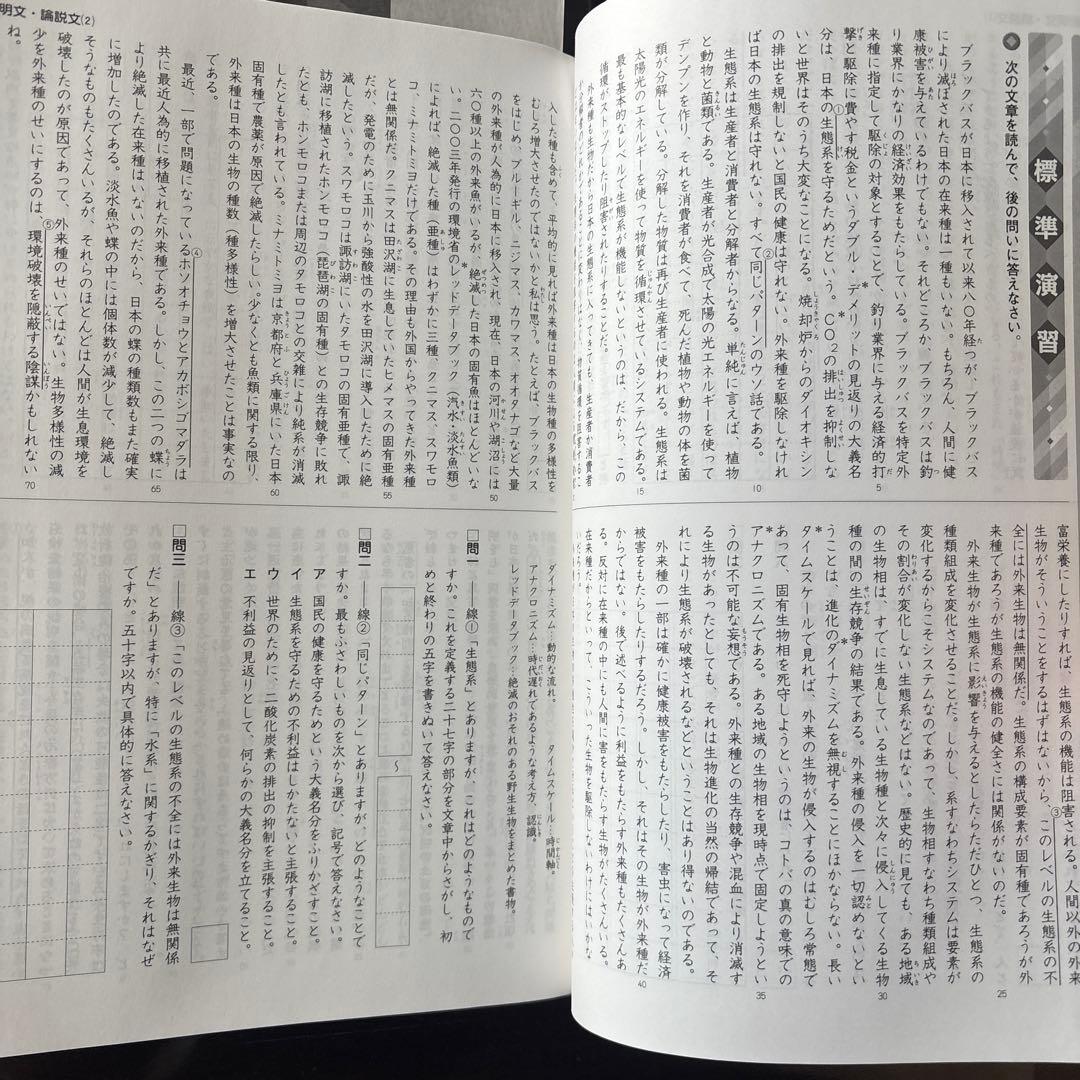 標準演習
◆ 次の文章を読んで、後の問いに答えなさい。
ブラックバスが日本に移入されて以来八〇年経つが、ブラックバス
により滅ぼされた日本の在来種は一種もいない。もちろん、人間に健
康被害を与えているわけでもない。それどころか、ブラックバスは釣
り業界にかなりの経済効果をもたらしている。ブラックバスを特定外
来種に指定して駆除の対象とすることで、釣り業界に与える経済的打
撃と駆除に費やす税金というダブル・デメリットの見返りの大義名
分は、日本の①生態系を守るためだという。CO2の排出を抑制しな
いと世界はそのうち大変なことになる。焼却炉からのダイオキシン
の排出を規制しないと国民の健康は守れない。外来種を駆除しなけれ
ば日本の生態系は守れない。すべて②同じパターンのウソ話である。
生態系は生産者と消費者と分解者からなる。単純に言えば、植物
と動物と菌類である。生産者が光合成で太陽の光エネルギーを使って
デンプンを作り、それを消費者が食べて、死んだ植物や動物の体を菌
類が分解している。分解した物質は再び生産者に使われる。生態系は
太陽光のエネルギーを使って物質を循環させているシステムである。
最も基本的なレベルで生態系が機能しないというのは、だから、この
循環がストップしたり阻害されたりすることだ。
外来種も新たに日本の生態系に入ってきても、生産者か消費者
富栄養にしたりすれば、生態系の機能は阻害される。人間以外の外来
生物がそういうことをするはずはないから、③このレベルの生態系の不
全には外来生物は無関係だ。生態系の構成要素が固有種であろうが外
来種であろうが生態系の機能の健全さには関係がないのだ。
外来生物が生態系に影響を与えるとしたらただひとつ、生態系の
種類組成を変化させることだ。しかし、系すなわちシステムは要素が
変化するからこそシステムなのであって、生物相すなわち種類組成や
その割合が変化しない生態系などはない。歴史的に見ても、ある地域
の生物相は、すでに生息している生物種と次々に侵入してくる生物
種の間の生存競争の結果である。外来種の侵入を一切認めないとい
うことは、進化のダイナミズムを無視することにほかならない。長い
タイムスケールで見れば、外来の生物が侵入するのはむしろ常態で
あって、固有生物相を死守しようというのは、コトバの真の意味での
アナクロニズムである。ある地域の生物相を現時点で固定しようとい
うのは不可能な妄想である。外来種との生存競争や混血により消滅す
る生物があったとしても、それは生物進化の当然の帰結であって、そ
れにより生態系が破壊されるなどということはあり得ないのである。
外来種の一部は確かに健康被害をもたらしたり、害虫になって経済
被害をもたらしたりするだろう。しかし、それはその生物が外来種だ
からではない。後で述べるように利益をもたらす外来種もたくさんあ
る。反対に在来種の中にも人間に害をもたらす生物がたくさんいる。
在来種だからといって、こういった生物を駆除しないわけにはいかな
明文・論説文(2)
入した種も含めて、平均的に見れば外来種は日本の生物種の多様性を
むしろ増大させたのではないかと私は思う。たとえば、ブラックバス
をはじめ、ブルーギル、ニジマス、カワマス、オオタナゴなど大量
の外来種が人為的に日本に移入され、現在、日本の河川や湖沼には
六〇種以上の外来魚がいるが、絶滅した日本の固有魚はほとんどいな
い。二〇〇三年発行の環境省のレッドデータブック(汽水・淡水魚類)
によれば、絶滅した種(亜種)はわずかに三種、クニマス、スワモロ
コ、ミナミトミヨだけである。その理由も外国からやってきた外来種
とは無関係だ。クニマスは田沢湖に生息していたヒメマスの固有亜種
だが、発電のために玉川から強酸性の水を田沢湖に導入したために絶
滅したという。スワモロコは諏訪湖にいたタモロコの固有亜種で、諏
訪湖に移植されたホンモロコ(琵琶湖の固有種)との生存競争に敗れ
たとも、ホンモロコまたは周辺のタモロコとの交雑により純系が消滅
したとも言われている。ミナミトミヨは京都府と兵庫県にいた日本
固有種で農薬が原因で絶滅したらしい。少なくとも魚類に関する限り、
外来種は日本の生物の種数(種多様性)を増大させたことは事実なの
である。
最近、一部で問題になっている④ホソオチョウとアカボシゴマダラは
共に最近人為的に移植された外来種である。しかし、この二つの蝶に
より絶滅した在来種はいないのだから、日本の蝶の種類数もまた確実
に増加したのである。淡水魚や蝶の中には個体数が減少して、絶滅し
そうなものもたくさんいるが、それらのほとんどは人間が生息環境を
破壊したのが原因であって、外来種のせいではない。生物多様性の減
少を外来種のせいにするのは、⑤環境破壊を隠蔽する陰謀かもしれない
ね。
ダイナミズム…動的な流れ。 タイムスケール…時間軸。
アナクロニズム…時代遅れであるような考え方、認識。
レッドデータブック…絶滅のおそれのある野生生物をまとめた書物。
□問一 ――線①「生態系」とありますが、これはどのようなもので
すか。これを定義する二十七字の部分を文章中からさがし、初
めと終わりの五字を書きぬいて答えなさい。
〜
□問二 ――線②「同じパターン」とありますが、どのようなことで
すか。最もふさわしいものを次から選び、記号で答えなさい。
ア 国民の健康を守るためという大義名分をふりかざすこと。
イ 生態系を守るための不利益はしかたないと主張すること。
ウ 世界のために、二酸化炭素の排出の抑制を主張すること。
エ 不利益の見返りとして、何らかの大義名分を立てること。
□問三 ――線③「このレベルの生態系の不全には外来生物は無関係
だ」とありますが、特に「水系」に関するかぎり、それはなぜ
ですか。五十字以内で具体的に答えなさい。
5
10
15
25
30
35
40
50
55
60
65
70